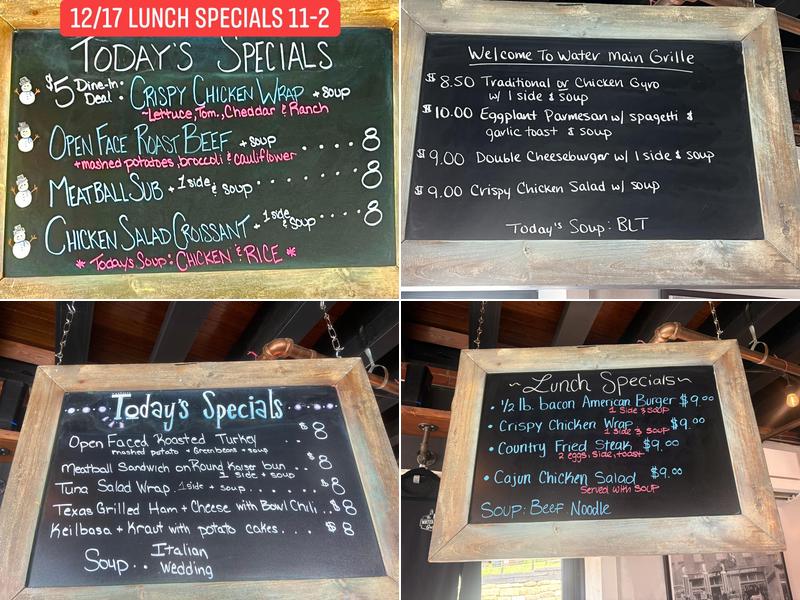 12/17 LUNCH SPECIALS 11-2
TODAY'S SPECIALS
$5 Dine-In Deal: CRISPY CHICKEN WRAP + soup
~Lettuce, Tom., Cheddar & Ranch
OPEN FACE ROAST BEEF + soup .... 8
+mashed potatoes, broccoli & cauliflower
MEATBALL SUB + 1 side & soup ....... 8
CHICKEN SALAD CROISSANT + 1 side & soup ... 8
* Today's Soup: CHICKEN & RICE *
Welcome To Water Main Grille
$8.50 Traditional or Chicken Gyro
w/ 1 side & soup
$10.00 Eggplant Parmesan w/ spagetti &
garlic toast & soup
$9.00 Double Cheeseburger w/ 1 side & soup
$9.00 Crispy Chicken Salad w/ soup
Today's Soup: BLT
Today's Specials
Open Faced Roasted Turkey ... $8
mashed potato + Greenbeans + soup
Meatball Sandwich on Round Kaiser bun ... $8
1 side + soup
Tuna Salad Wrap 1 side + soup .... $8
Texas Grilled Ham + Cheese with Bowl Chili .. $8
Keilbasa + Kraut with potato cakes... $8
Soup.. Italian
Wedding
~Lunch Specials~
• 1/2 lb. bacon American Burger $9.00
1 Side & soup
• Crispy Chicken Wrap $9.00
1 side & soup
• Country Fried Steak $9.00
2 eggs, side, toast
• Cajun Chicken Salad $9.00
Served with soup
SOUP: Beef Noodle